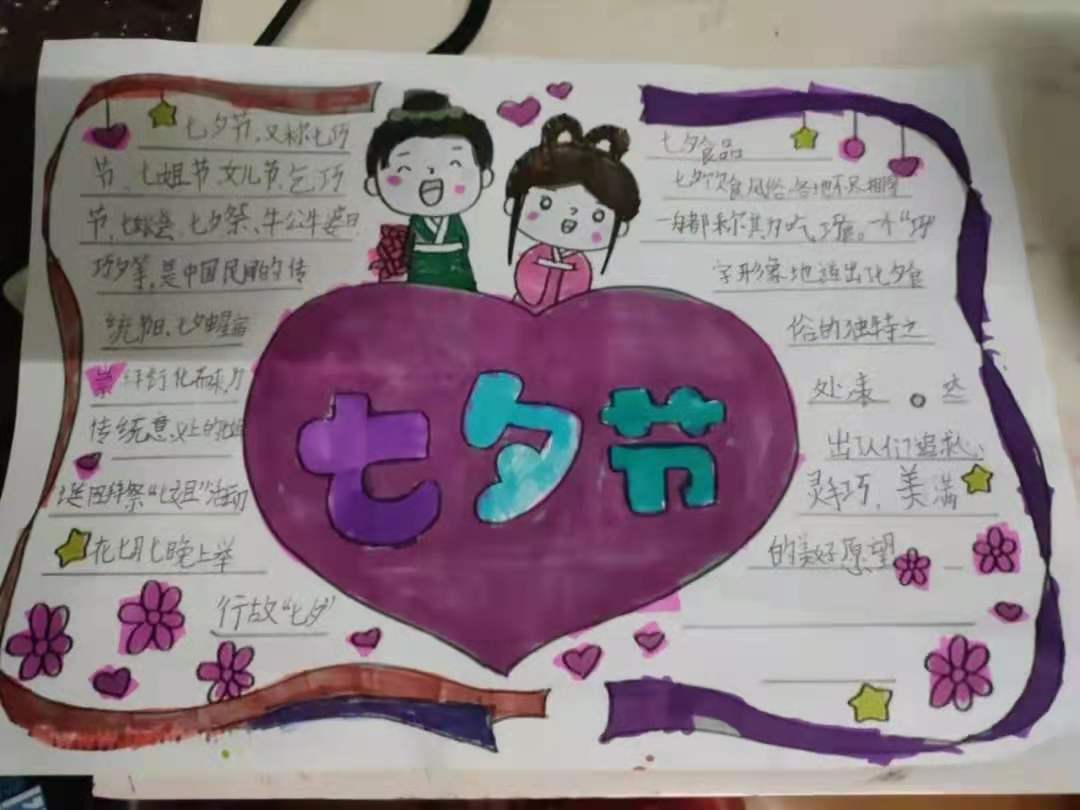 七夕节,又称七巧
节、七姐节、女儿节、乞巧
节、七娘会、七夕祭、牛公牛婆日
巧夕等,是中国民间的传
统节日。七夕
传统意义上的七姐
祭“七姐”活动
在七月七晚上举
行故“七夕”
七夕节
七夕食品
七夕饮食风俗,各地不尽相同
一般都称其为吃巧食。一个“巧”
字形象地道出七夕食
俗的独特之
处表。达
出人们追求心
灵手巧,美满
的美好愿望